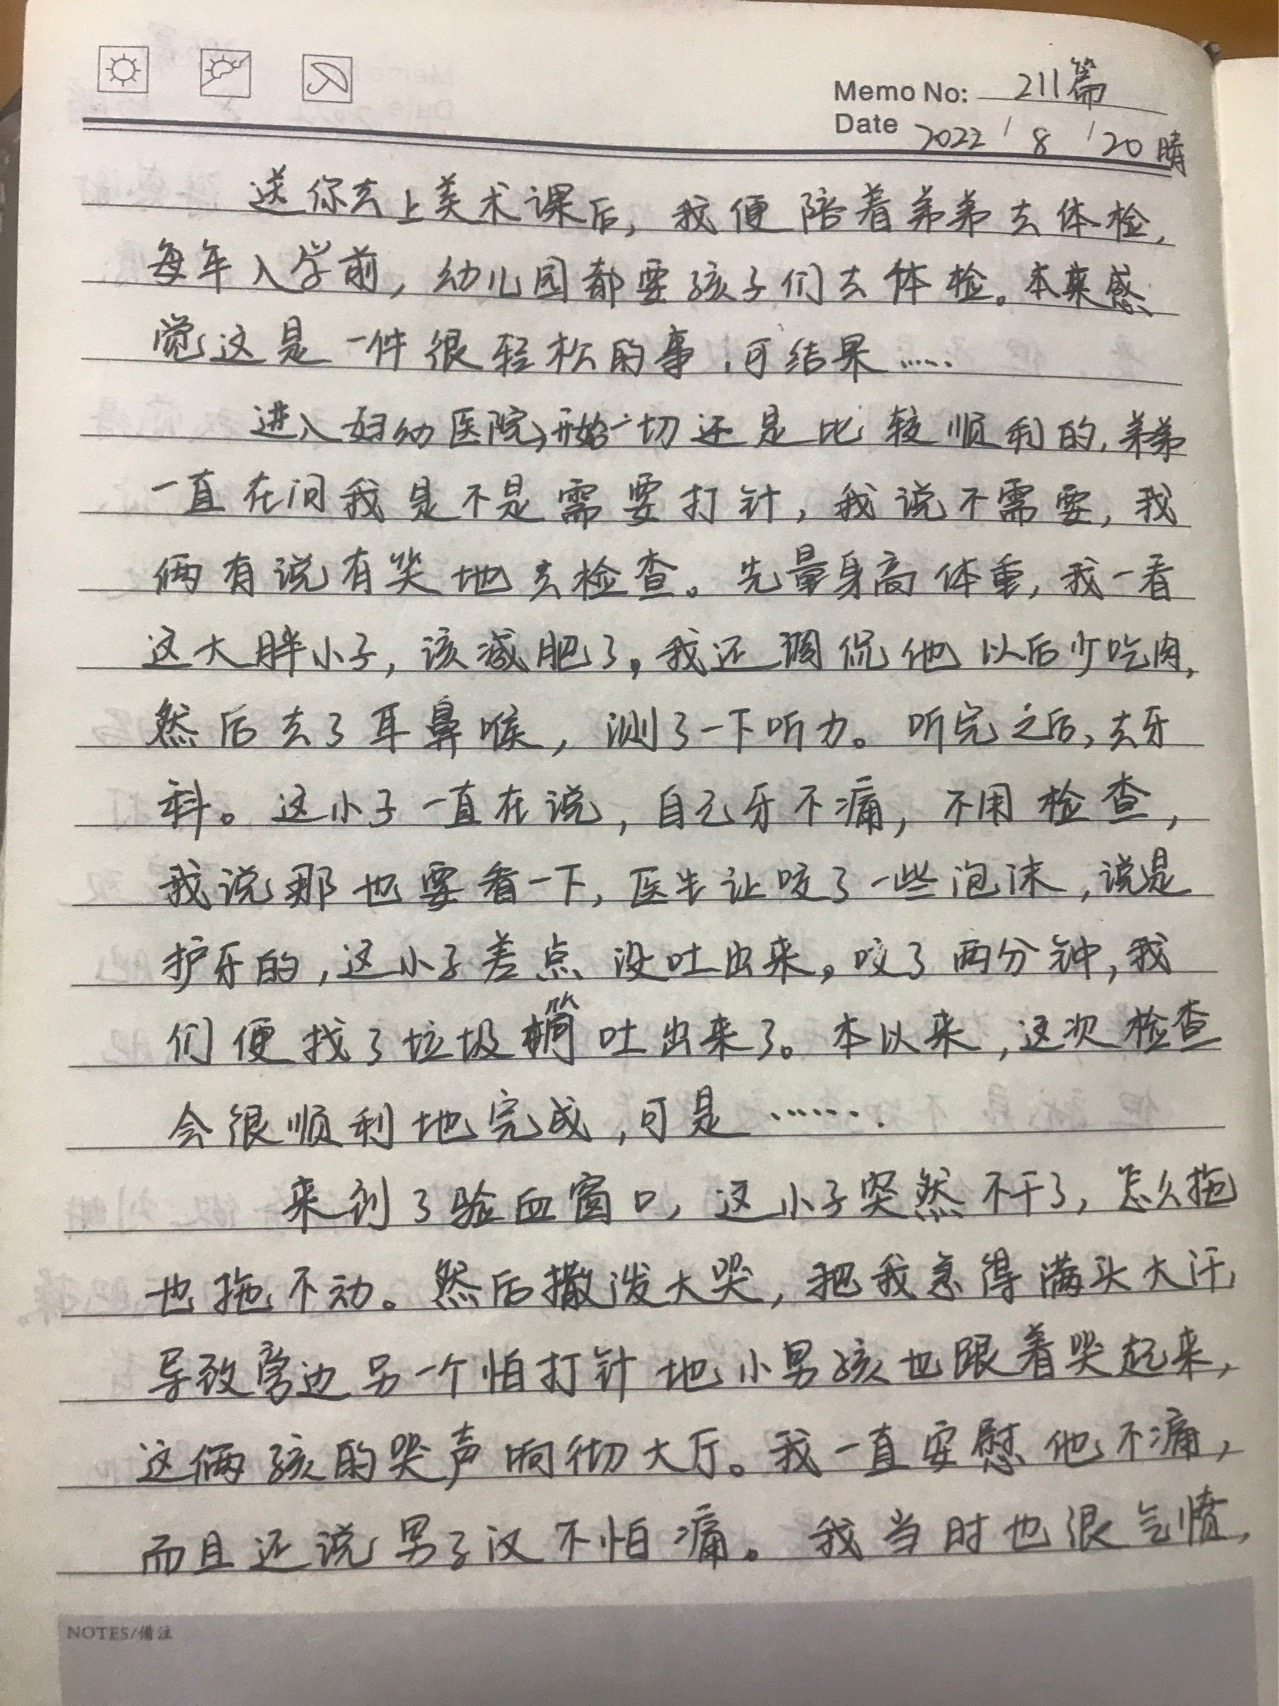 Memo No: 211篇
Date 2022/8/20晴
送你去上美术课后,我便陪着弟弟去体检,
每年入学前,幼儿园都要孩子们去体检。本来感
觉这是一件很轻松的事,可结果……
进入妇幼医院,开始一切还是比较顺利的,弟弟
一直在问我是不是需要打针,我说不需要,我
俩有说有笑地去检查。先量身高体重,我一看
这大胖小子,该减肥了,我还调侃他以后少吃肉,
然后去了耳鼻喉,测了一下听力。听完之后,去牙
科。这小子一直在说,自己牙不痛,不用检查,
我说那也要看一下,医生让咬了一些泡沫,说是
护牙的,这小子差点没吐出来。咬了两分钟,我
们便找了垃圾筒吐出来了。本以来,这次检查
会很顺利地完成,可是……
来到了验血窗口,这小子突然不干了,怎么拖
也拖不动。然后撒泼大哭,把我急得满头大汗,
导致旁边另一个怕打针地小男孩也跟着哭起来,
这俩孩的哭声响彻大厅。我一直安慰他不痛,
而且还说男子汉不怕痛。我当时也很气愤,
NOTES/备注